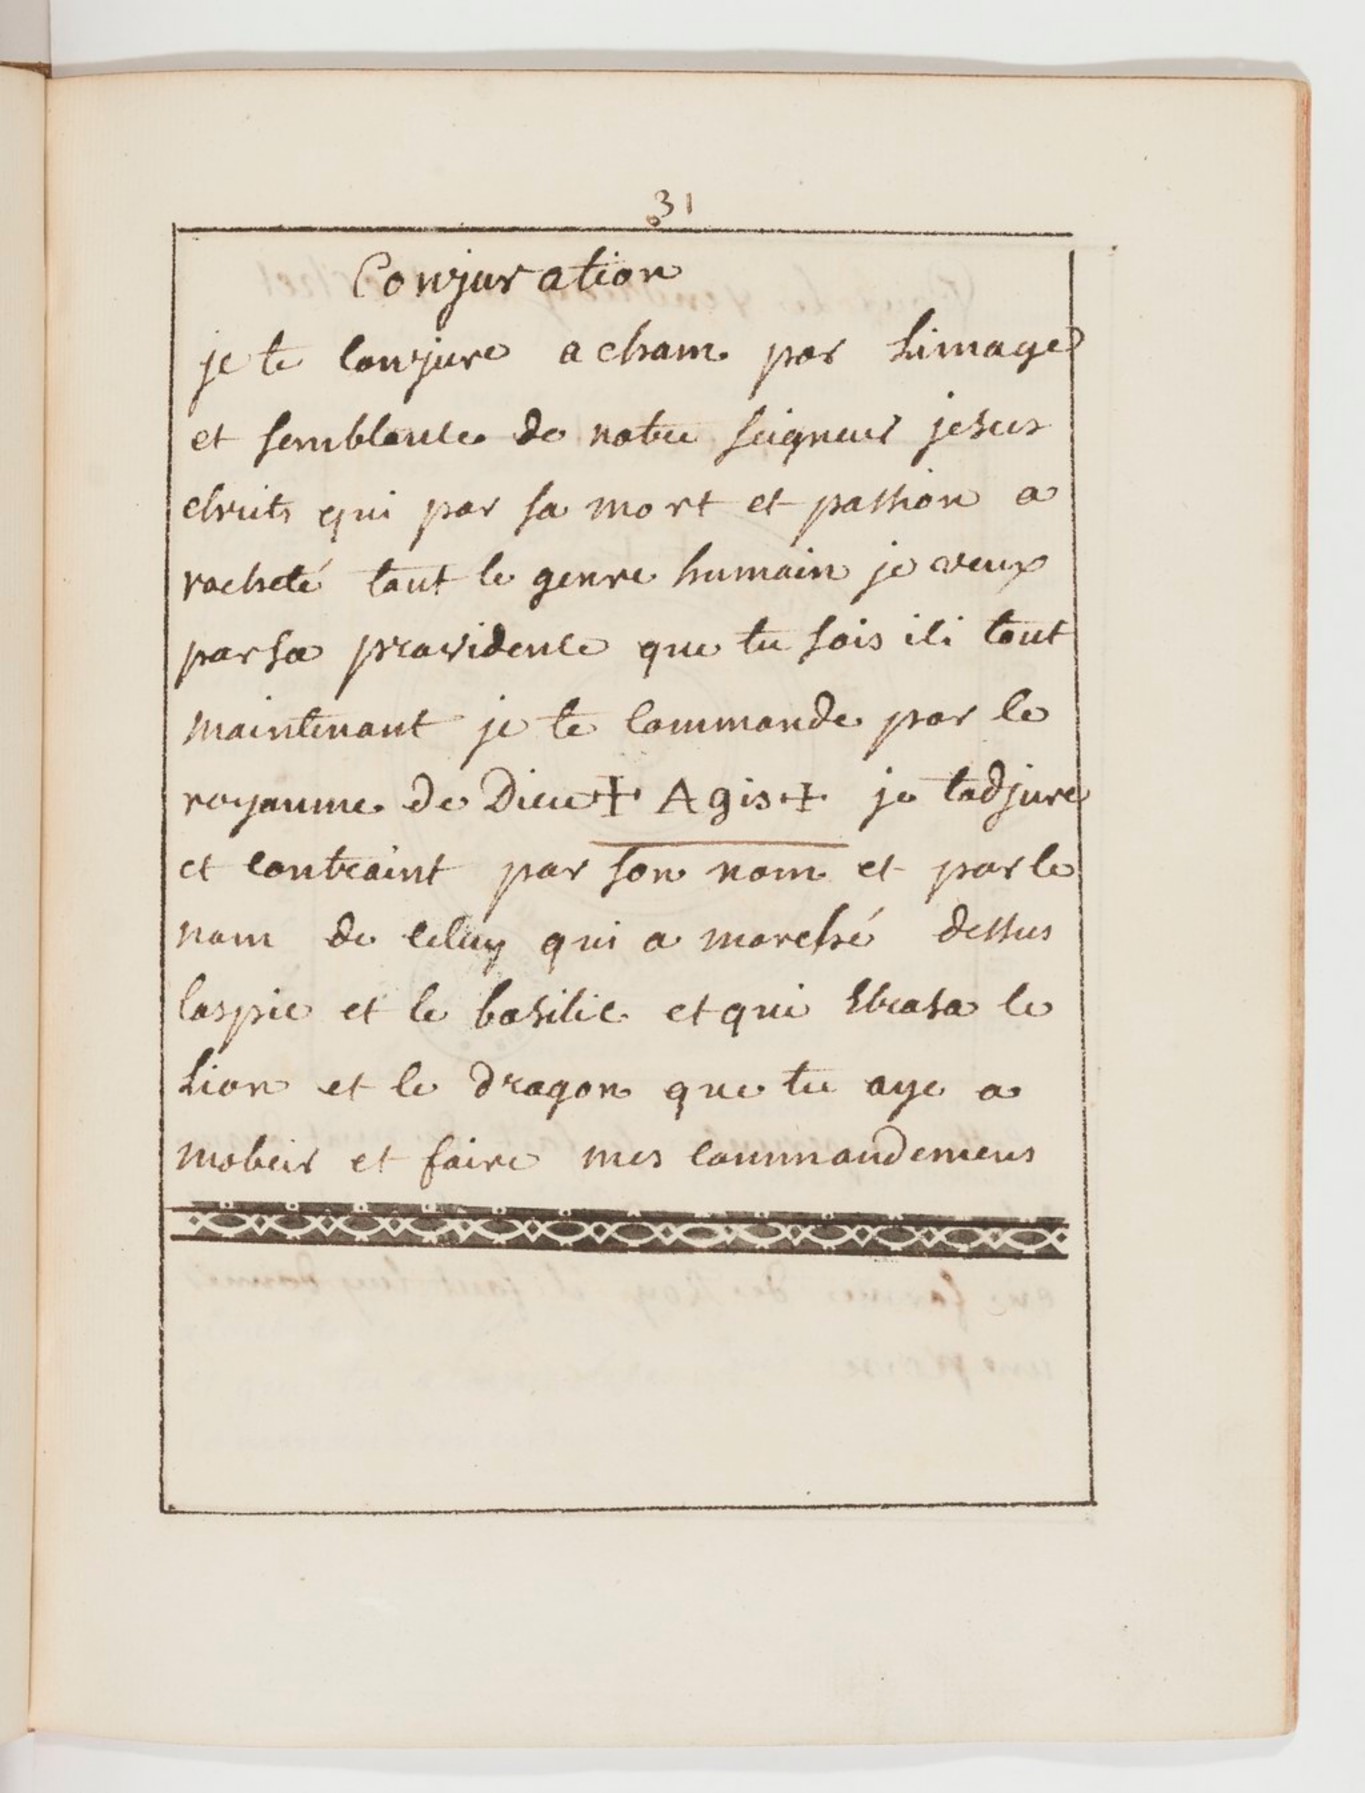 31
Conjuration
je te conjure acham par Limage
et semblance de notre seigneur jesus
chrits qui par sa mort et passion a
racheté tout le genre humain je veux
par sa providence que tu sois ici tout
maintenant je te commande par le
royaume de Dieu + Agis + je tadjure
et contraint par son nom et par le
nom de celuy qui a marché dessus
laspic et le basilic et qui Ecrasa le
Lion et le dragon que tu aye a
mobeir et faire mes commandemens